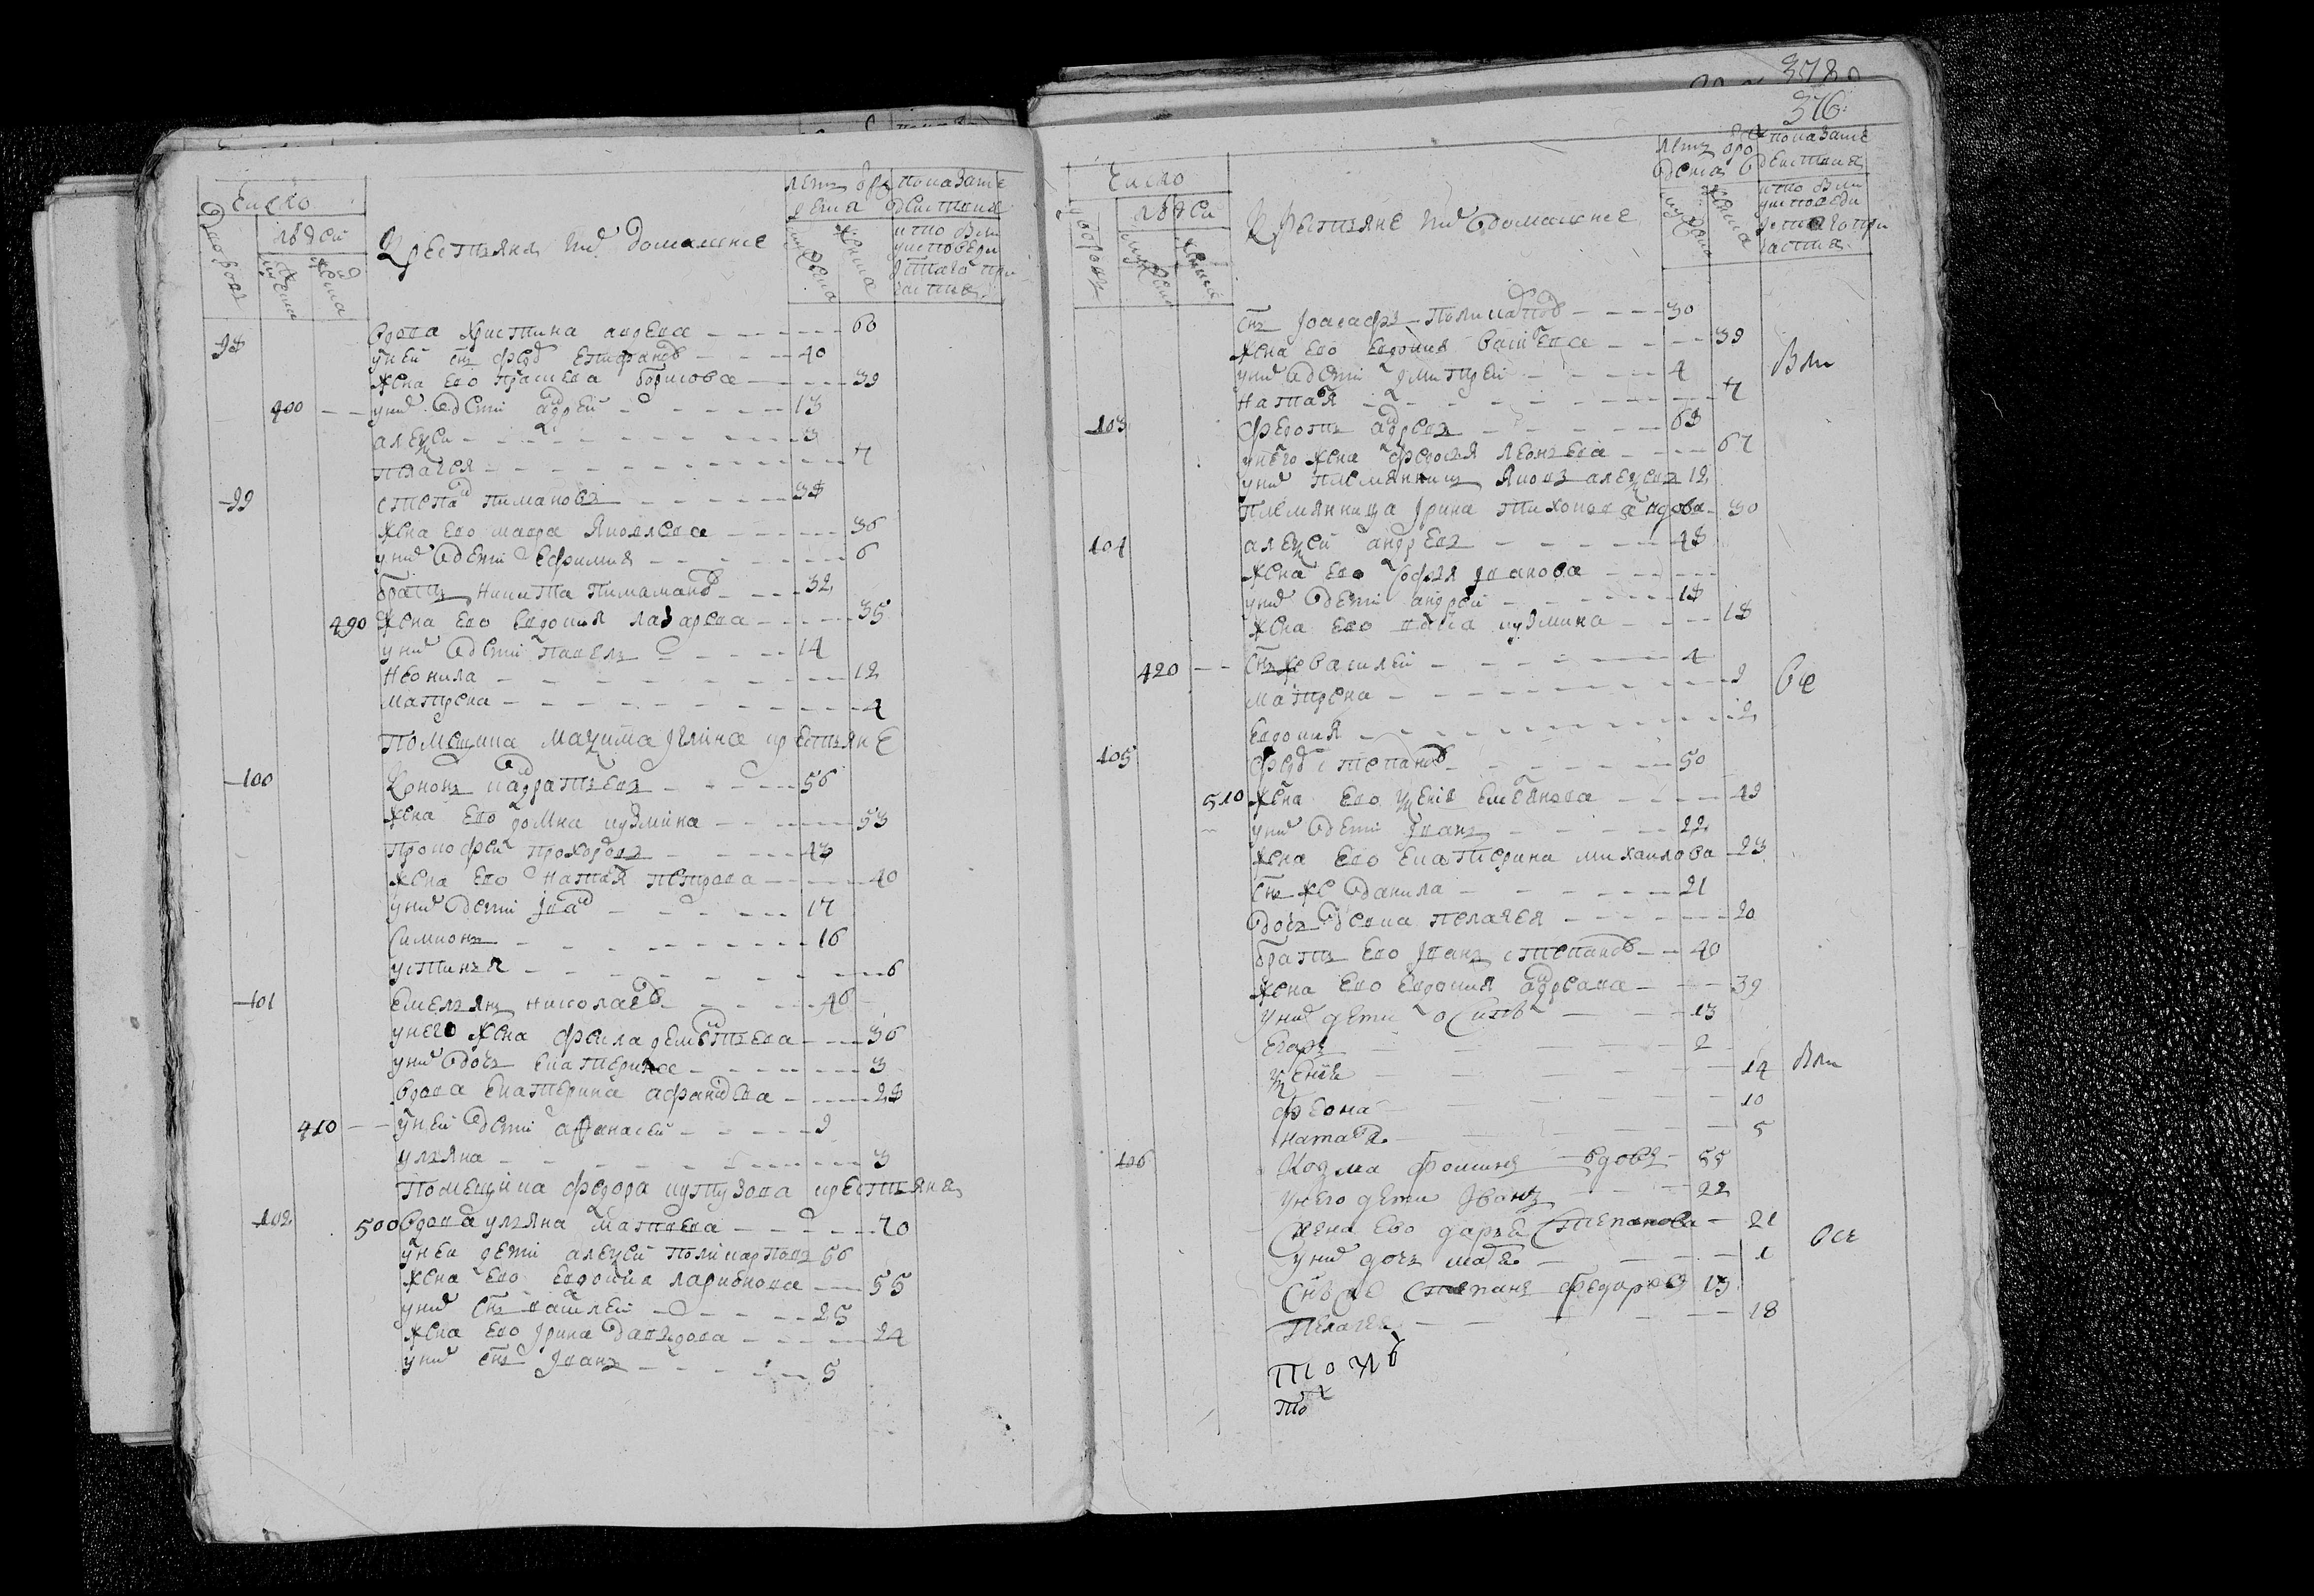 Число
людей
Дворовъ
мужеска
женска
Крестьяня и ихъ домашние
лета от рождения
мужеска
женска
показате
действия
кто был
у исповеди
и святаго при
частия
98 вдова христина андреева 60
у ней снъ федоръ епифановъ 40
жена ево прасковья борисова 39
400 у них дети андрей 13
алексей 3
пелагея 7
99 степанъ пимановъ 38
жена ево мавра яковлева 36
у них дети ефимия 6
братъ никита пимановъ 32
490 жена ево евдокия лазарева 35
у них дети павелъ 14
неонила 12
матрена 4
помещика максима крестьяне
100 кононъ кандратьевъ 56
жена ево домна кузмина 53
прокофей прохоровъ 43
жена ево наталья петрова 40
у них дети иванъ 17
симионъ 16
устинья 6
101 емельянъ николаевъ 46
у него жена фекла дементьева 36
у них дочь екатерина 3
вдова екатерина афанасьева 28
410 у ней дети афанасей 9
ульяна 3
помещика федора кутузова крестьяня
102 500 вдова ульяна матвеева 70
у ней дети алексей поликарповъ 56
жена ево евдокия ларионова 55
у них снъ василей 25
жена ево ирина давыдова 24
у них снъ иванъ 5
378
376
Число
людей
дворовъ
мужеска
женска
Крестьяне и ихъ домашние
летъ от рождества
мужеска
женска
показате
действия
кто были
у исповеди
и святаго при
частия
снъ иоасафъ поликарповъ 30
жена ево евдокия васильева 39
у них дети дмитрей 4 были
наталья 7
103 федотъ андреевъ 63
у него жена федосья леонтьева 67
у них племянникъ яковъ алексеевъ 12
племянница ирина тихонова вдова 30
104 алексей андреевъ 48
жена ево софья иванова
у них дети андрей 18
жена ево кузмина 18
420 снъ же василей 4
матрена 9 все
евдокия 2
105 федоръ степановъ 50
510 жена ево ксения емельянова 49
у них дети иванъ 22
жена ево екатерина михаилова 23
снъ же данила 21
дочь девка пелагея 20
братъ ево иванъ степановъ 40
жена ево евдокия андреева 39
у них дети осипъ 13
егоръ 2
ксения 14 были
феона 10
наталья 5
106 Козма фоминъ вдовъ 55
у него дети иванъ 22
жена ево дарья степанова 21
у них дочь 1 все
снъ же степанъ федоровъ 19
пелагея 18
то